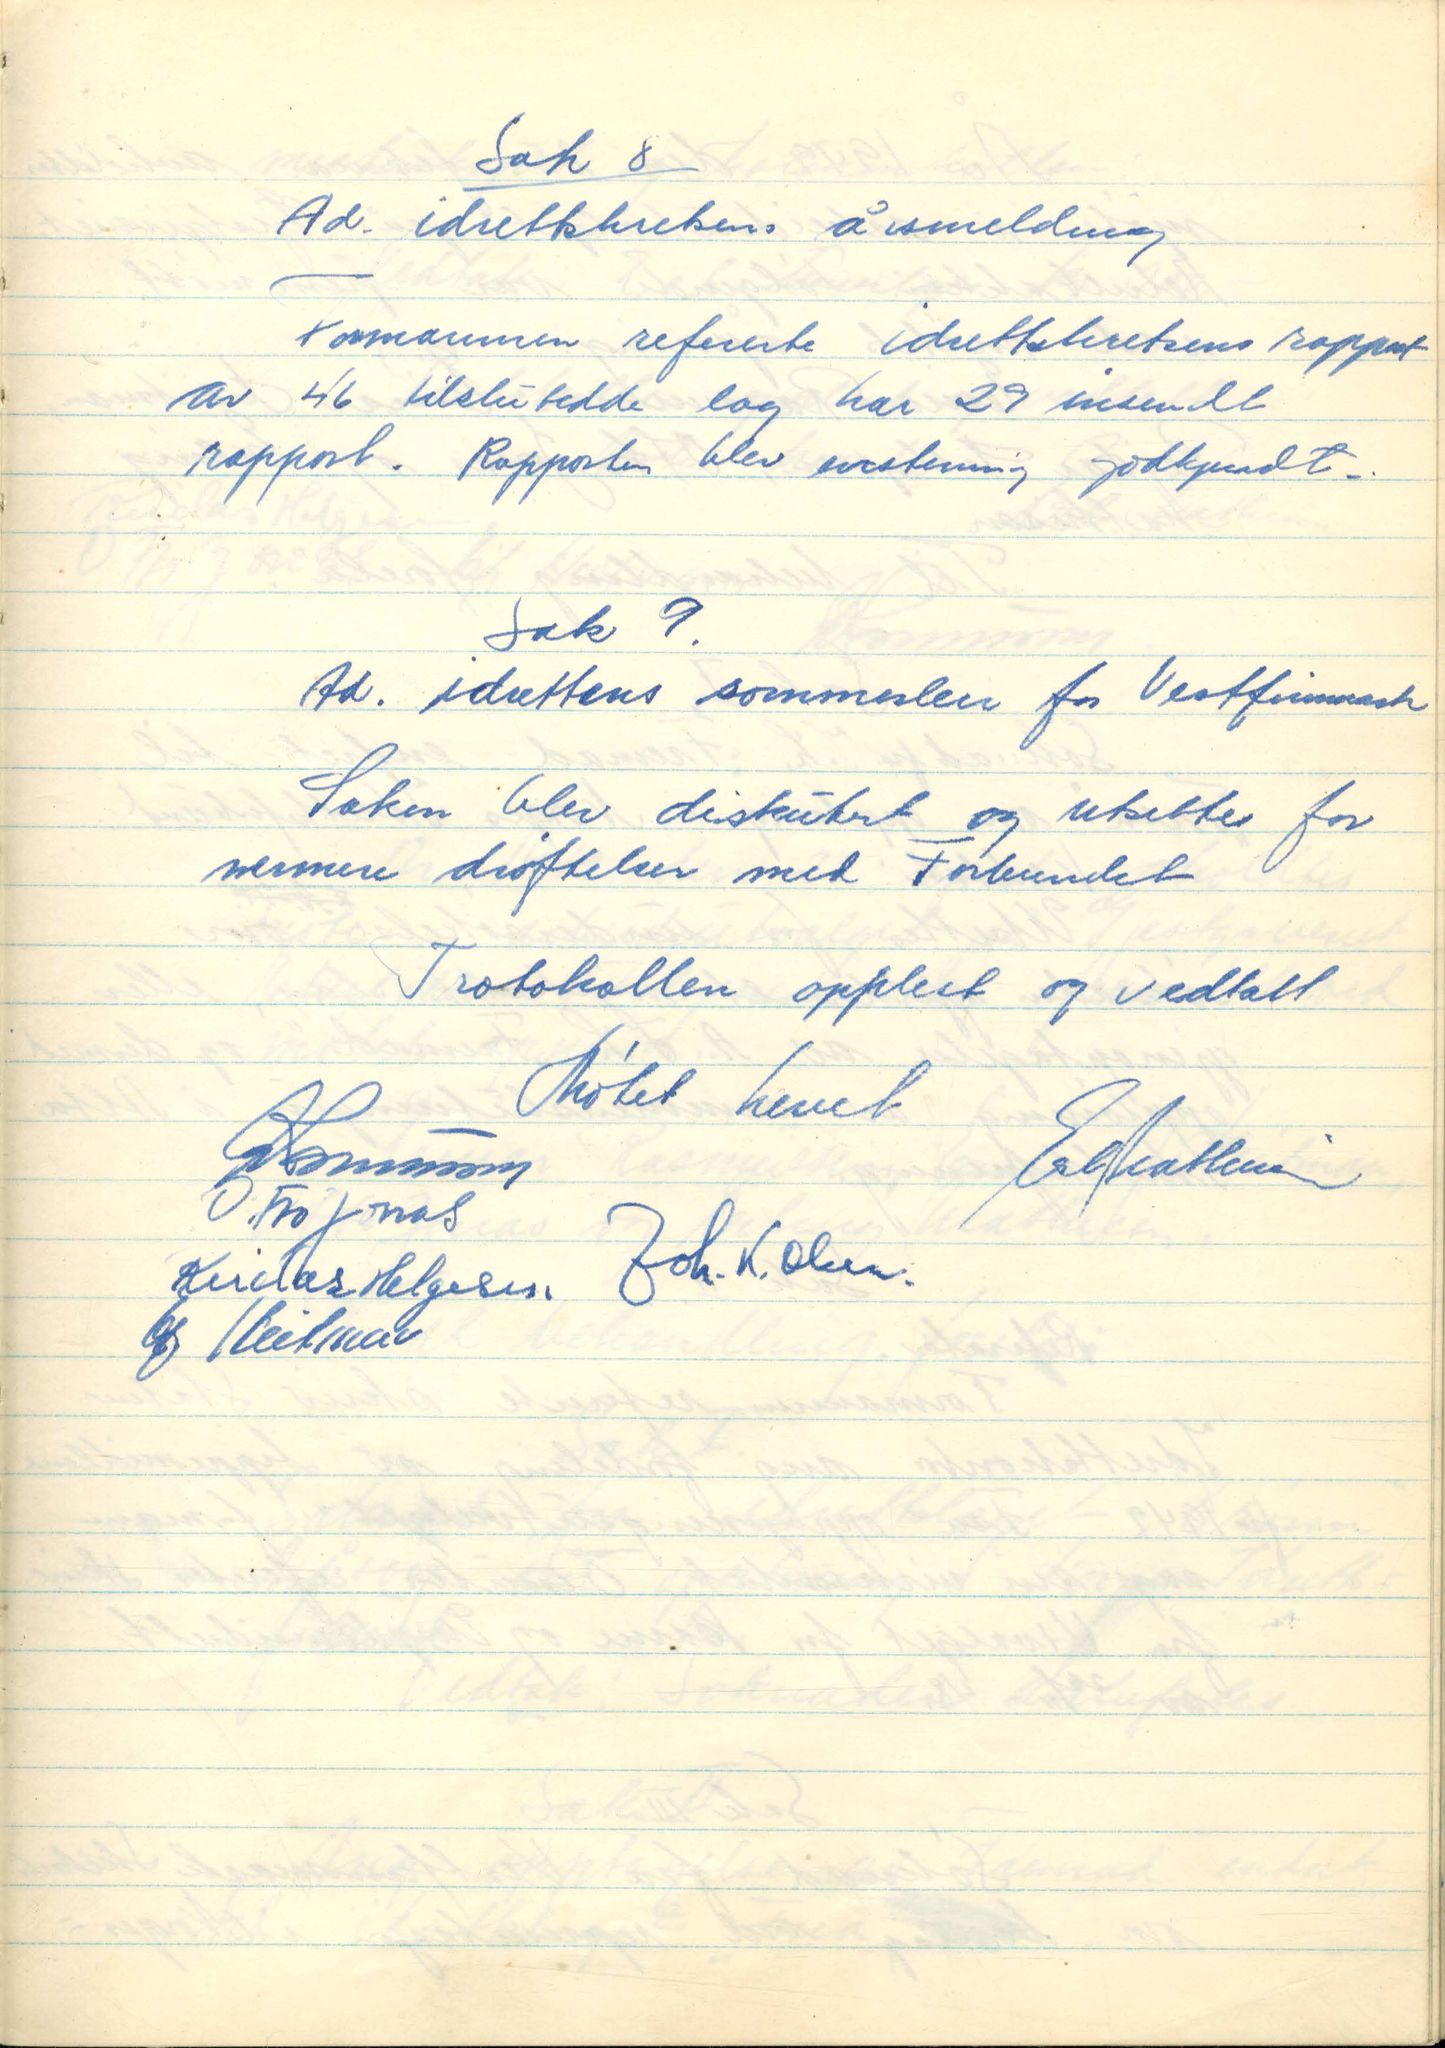 Sak 8
Ad. idrettskretsens årsmelding
Formannen refererte idrettskretsens rapport
av 46 tilslutedde lag har 29 insendt
rapport. Rapporten blev enstemmig godkjendt.
Sak 9.
Ad. idrettens sommerleir for Vestfinnmark
Saken blev diskutert og utsettes for
nermere drøftelser med Forbundet
Protokollen opplest og vedtatt
Møtet hevet
Helgesen. Joh. K. Olsen.